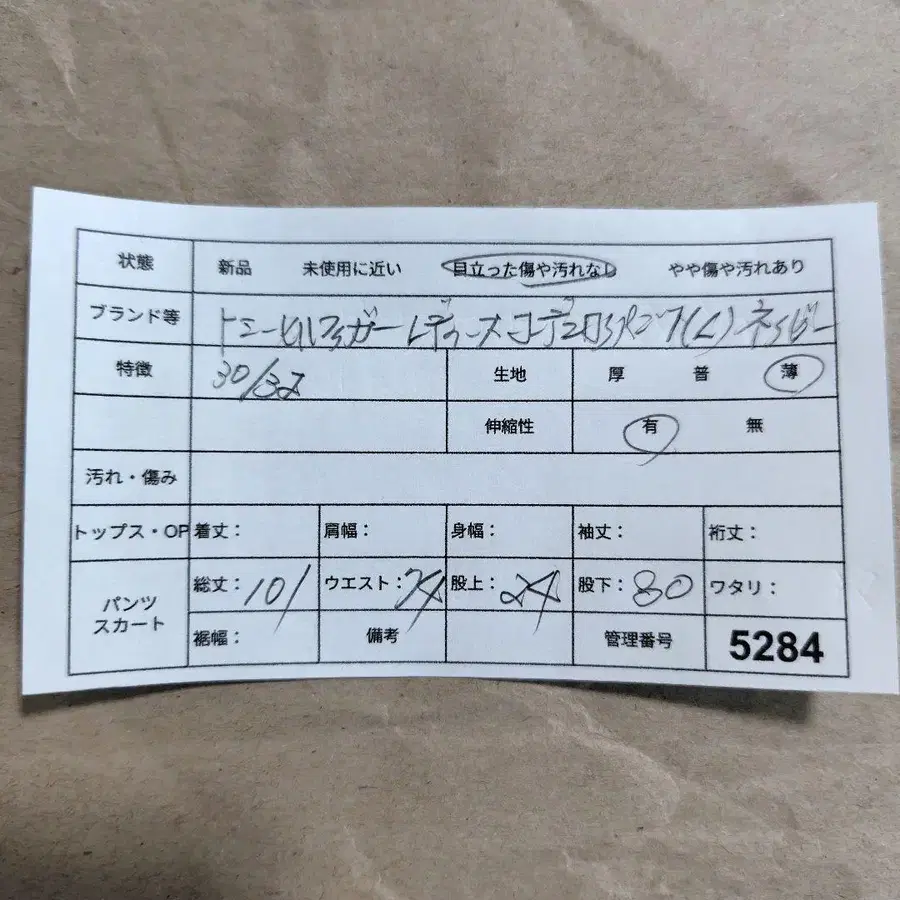 状態 新品 未使用に近い 目立った傷や汚れなし やや傷や汚れあり
ブランド等 トミーヒルフィガー レディース コーデュロイパンツ(L) ネイビー
特徴 30/32 生地 厚 普 薄
伸縮性 有 無
汚れ・傷み
トップス・OP 着丈: 肩幅: 身幅: 袖丈: 裄丈:
パンツ スカート 総丈:101 ウエスト: 股上:24 股下:80 ワタリ:
裾幅: 備考 管理番号 5284